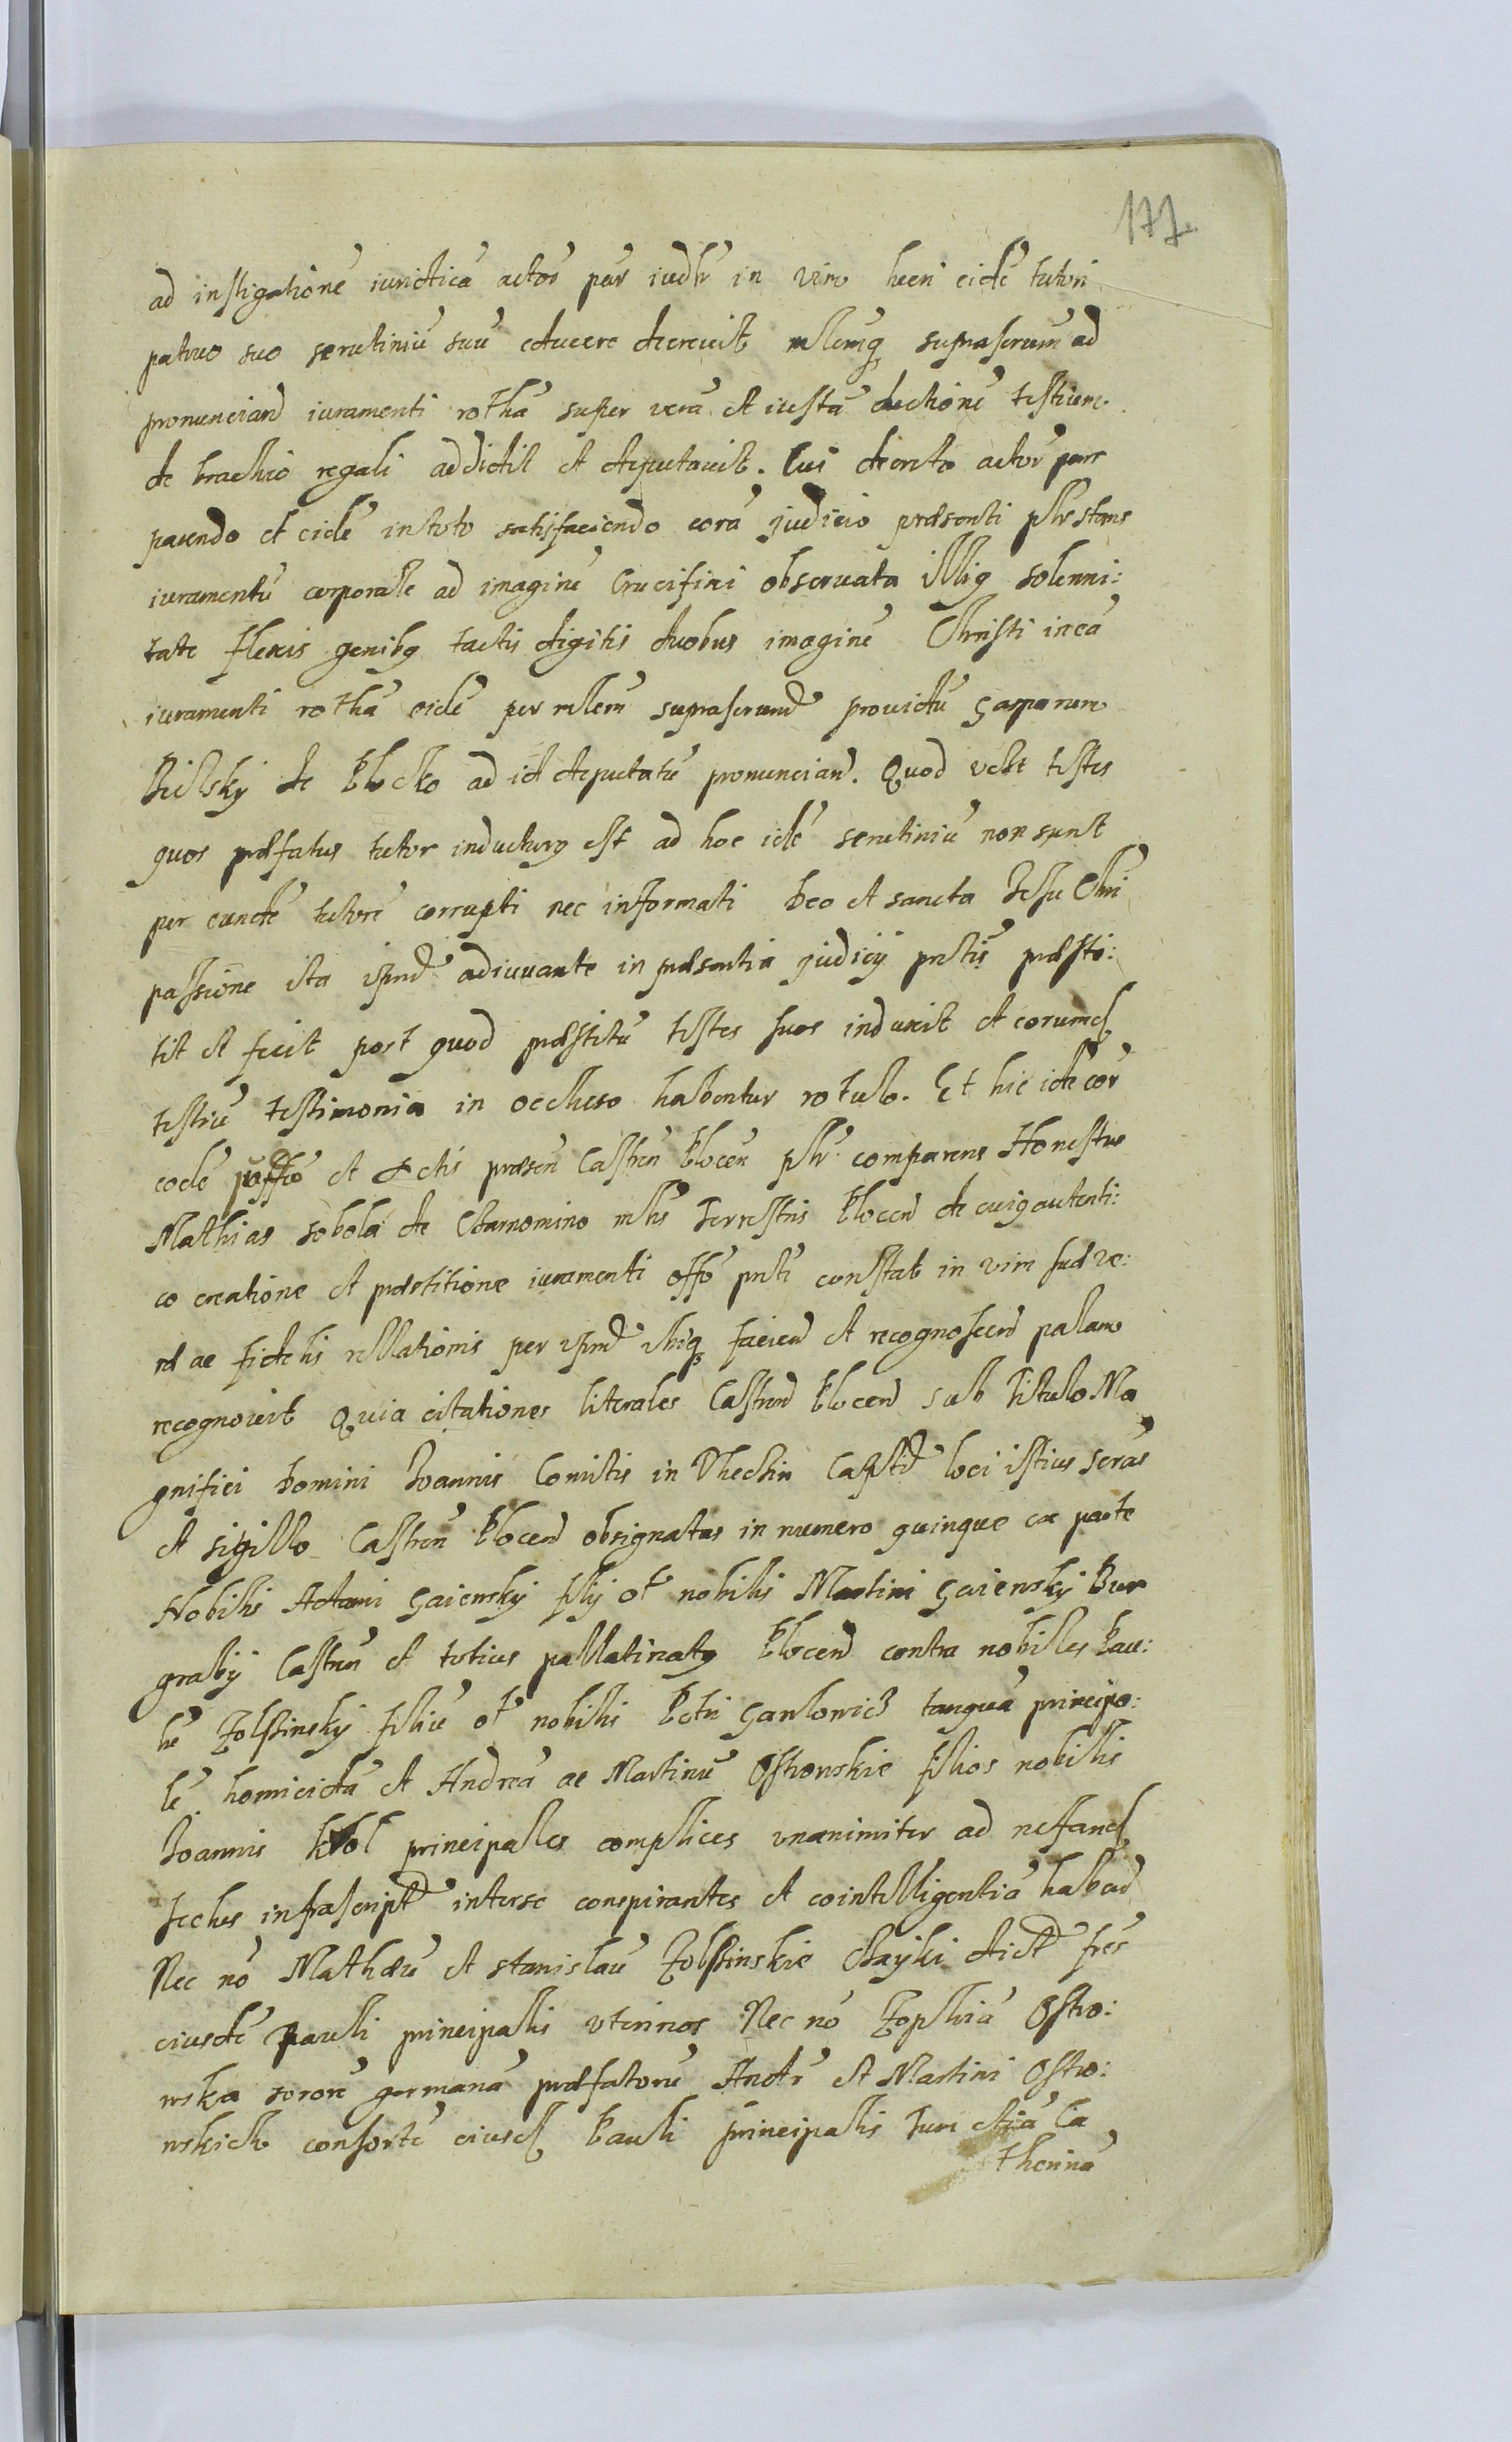 177
ad instigationē iuridicā actoȓ par̄ iudłr in vim lucri eidē tutori
patruo suo scrutiniū suū educere decrevit mlemq supraſcrum ad
pronunciand iuramenti rothā super verā et iustā ductionē testium
de brachio regali addidit et deputavit. Cui decreto actor pars
parendo et eidē in toto satisfaciendo corā judicio præsenti płr stans
iuramentū corporalle ad imaginē Crucifixi observata illiq solenni:
tate flexis genibq tactis digitis duobus imaginē Christi in ea
iuramenti rothā eidē per mlem supraſcrum providū Gasparum
Bielsky de Plocko ad id deputatū pronunciand. Quod vełt testes
quos præfatus tutor inducturq est ad hoc idē scrutiniū non sunt
per eundē tutorē corrupti nec informati Deo et sancta Jesu Chri
passione ita ipm adiuvante in præsentia judicij pntis præsti:
tit et fecit post quod præstitū testes suos induxit et eorumd
testiū testimonia in occluso habentur rotulo. Et hic idē cor̄
eodē offo et Actis præsen Castren Plocen płr comparens Honestus
Mathias Sobola de Czarnomino mlis terrestris Plocen de cuiq autenti:
co creatione et præstitione iuramenti offo pnti constat in vim suæ ve:
ræ ac fidelis rellationis per ipm ibiq facien et recognoscen palam
recognovit Quia citationes literales Castren Plocen sub titulo Ma
gnifici Domini Joannis Comitis in Thechin Capit loci istius scras
et sigillo Castren Plocen obsignatas in numero quinque ex parte
Nobilis Adami Gaiewsky filij ol nobilis Martini Gaiewsky Bur
grabij Castren et totius pallatinatq Plocen contra nobilles Pau:
lū Zolstinsky filiū ol nobilis Petri Gawlowicz tanquā principa:
lē homicidā et Andreā ac Martinū Ostrowskie filios nobillis
Joannis Krol principalles complices unanimiter ad nefand
scelus infrascript interse conspirantes et cointelligentiā haben
Nec nō Mathæū et Stanislaū Zolstinskie Czayki dict frēs
eiusdē Pauli principallis uterinos Nec nō Zophiā Ostro:
wska sororē germanā præfatorū Andr et Martini Ostro:
wskich consortē eiusd Pauli principallis
therinā